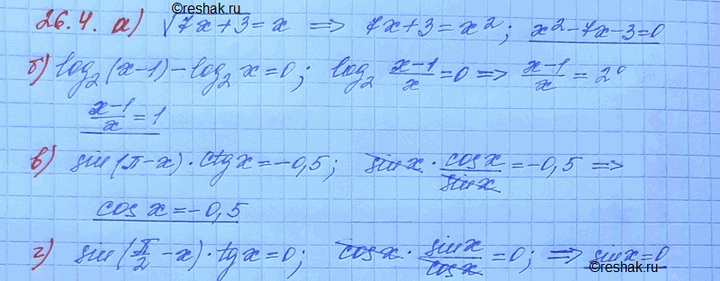 ©reshak.ru
26.4. а) √7x+3 = x ⟹ 7x+3 = x²; x²-7x-3=0
б) log₂(x-1) - log₂ x = 0; log₂ (x-1)/x = 0 ⟹ (x-1)/x = 2⁰
(x-1)/x = 1
в) sin(π-x)·ctgx = -0,5; sinx · cosx/sinx = -0,5 ⟹
cosx = -0,5
г) sin(π/2 - x)·tgx = 0; cosx · sinx/cosx = 0; ⟹ sinx = 0
©reshak.ru